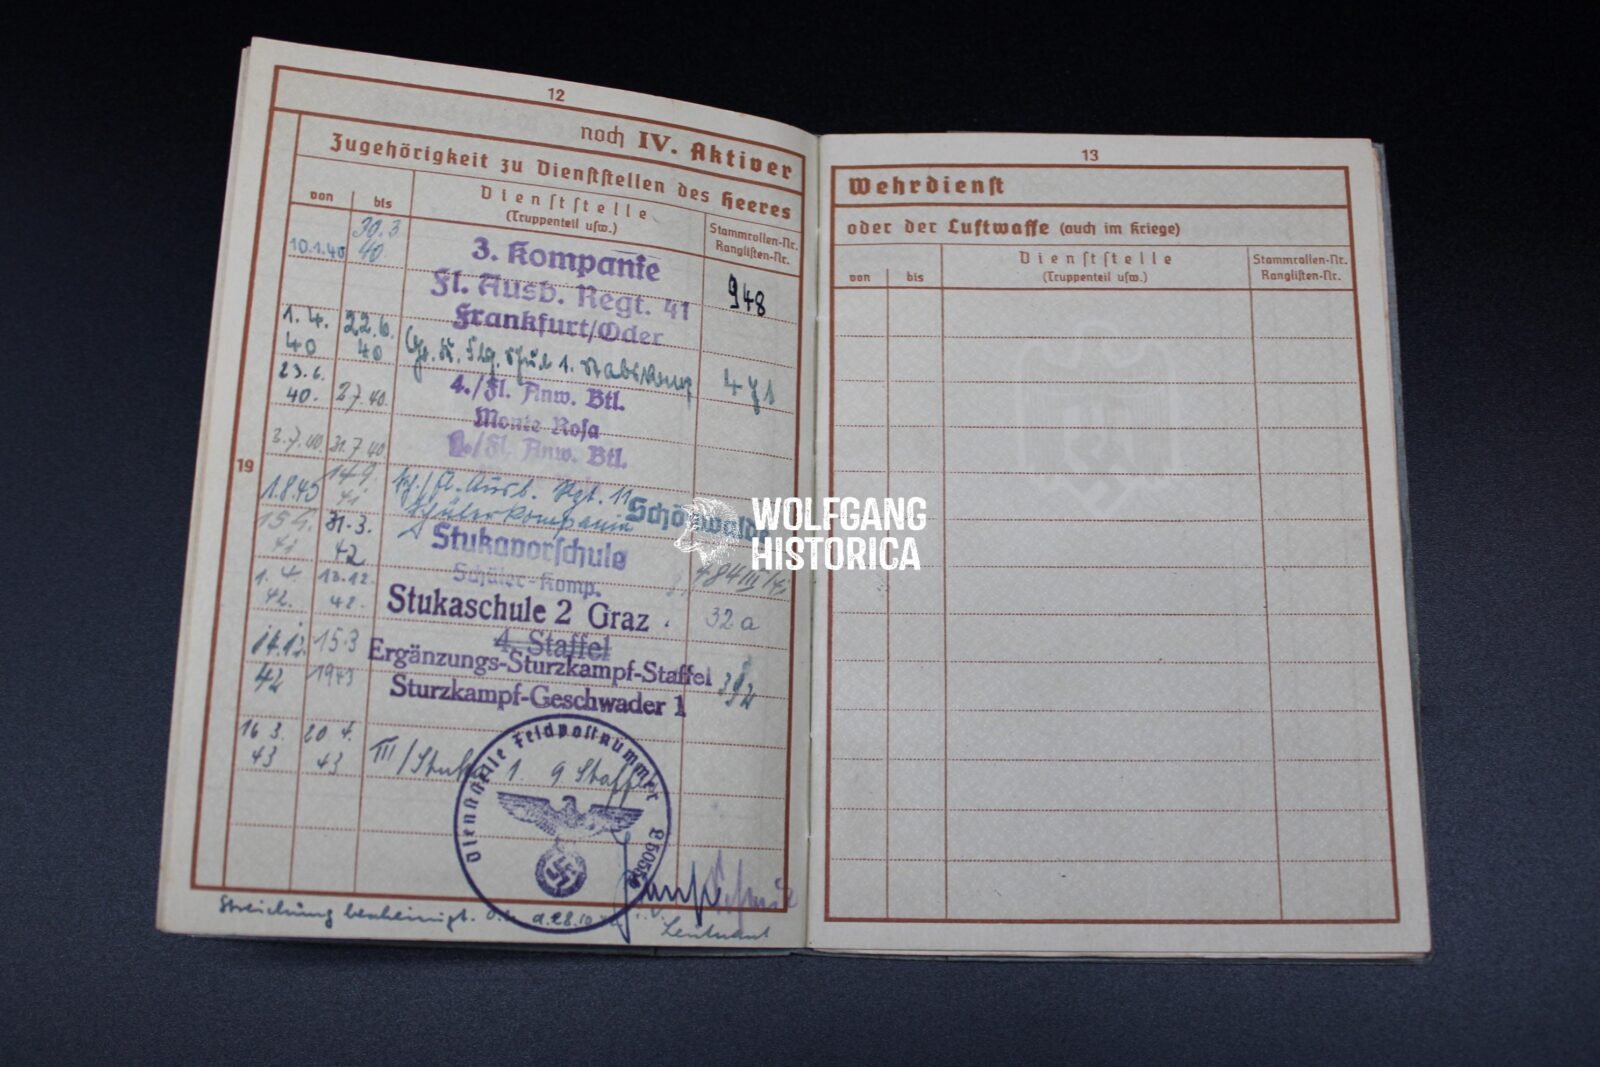 12
noch IV. Aktiver
Zugehörigkeit zu Dienststellen des Heeres
von
bis
Dienststelle
(Truppenteil usw.)
Stammrollen-Nr.
Ranglisten-Nr.
10.1.40
30.3
40
3. Kompanie
Fl. Ausb. Regt. 41
Frankfurt/Oder
948
1. 4.
40
22.6.
40
1.
471
23.6.
40.
2.7.40.
4./Fl. Anw. Btl.
Monte Rosa
2.7.40
31.7.40
/Fl. Anw. Btl.
19
1.8.40
14.9.
41
Fl. Ausb. Rgt. 11 Schönwalde
Schülerkompanie
41
31.3.
42
Stukavorschule
Schüler-Komp.
1. 4.
42.
13.12.
42.
Stukaschule 2 Graz
32a
4. Staffel
14.12.
42
15.3
1943
Ergänzungs-Sturzkampf-Staffel
Sturzkampf-Geschwader 1
16 3.
43
20 4.
43
III/Stuka 1. 9 Staffel
Dienststelle Feldpostnummer
Streichung bescheinigt. O.U. d. 28.10.
Leutnant
13
Wehrdienst
oder der Luftwaffe (auch im Kriege)
von
bis
Dienststelle
(Truppenteil usw.)
Stammrollen-Nr.
Ranglisten-Nr.
WOLFGANG
HISTORICA